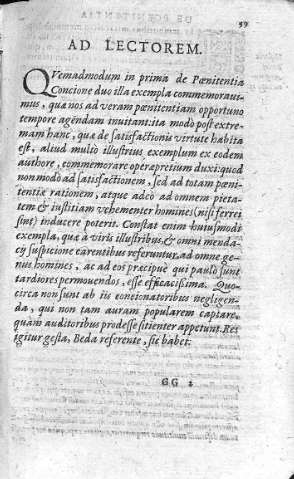 59
AD LECTOREM.
QVemadmodum in prima de Pœnitentia
Concione duo illa exempla commemoraui-
mus, quæ nos ad veram pænitentiam opportuno
tempore agendam inuitant: ita modò post extre-
mam hanc, quæ de satisfactionis virtute habita
est, aliud multò illustrius exemplum ex eodem
authore, commemorare operæpretium duxi: quod
non modò ad satisfactionem, sed ad totam pæni-
tentiæ rationem, atque adeò ad omnem pieta-
tem & iustitiam vehementer homines (nisi ferrei
sint) inducere poterit. Constat enim huiusmodi
exempla, quæ à viris illustribus, & omni menda-
cÿ suspicione carentibus referuntur, ad omne ge-
nus homines, ac ad eos præcipuè qui paulò sunt
tardiores permouendos, esse efficacissima. Quo-
circa non sunt ab iis concionatoribus negligen-
da, qui non tam auram popularem captare,
quàm auditoribus prodesse sitienter appetunt. Res
igitur gesta, Beda referente, sic habet:
GG 2